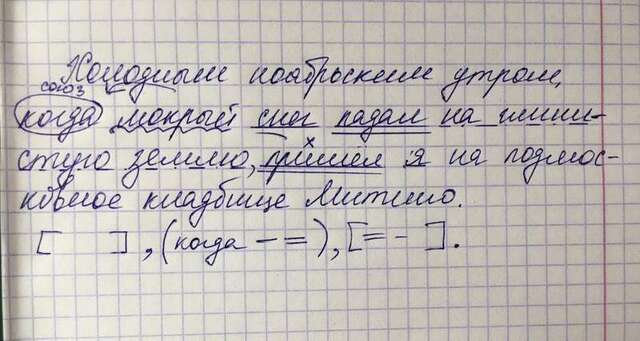 Холодным ноябрьским утром,
союз
когда мокрый снег падал на глини-
стую землю, пришёл я на подмос-
ковное кладбище Митино.
[ ], (когда – =), [= – ].